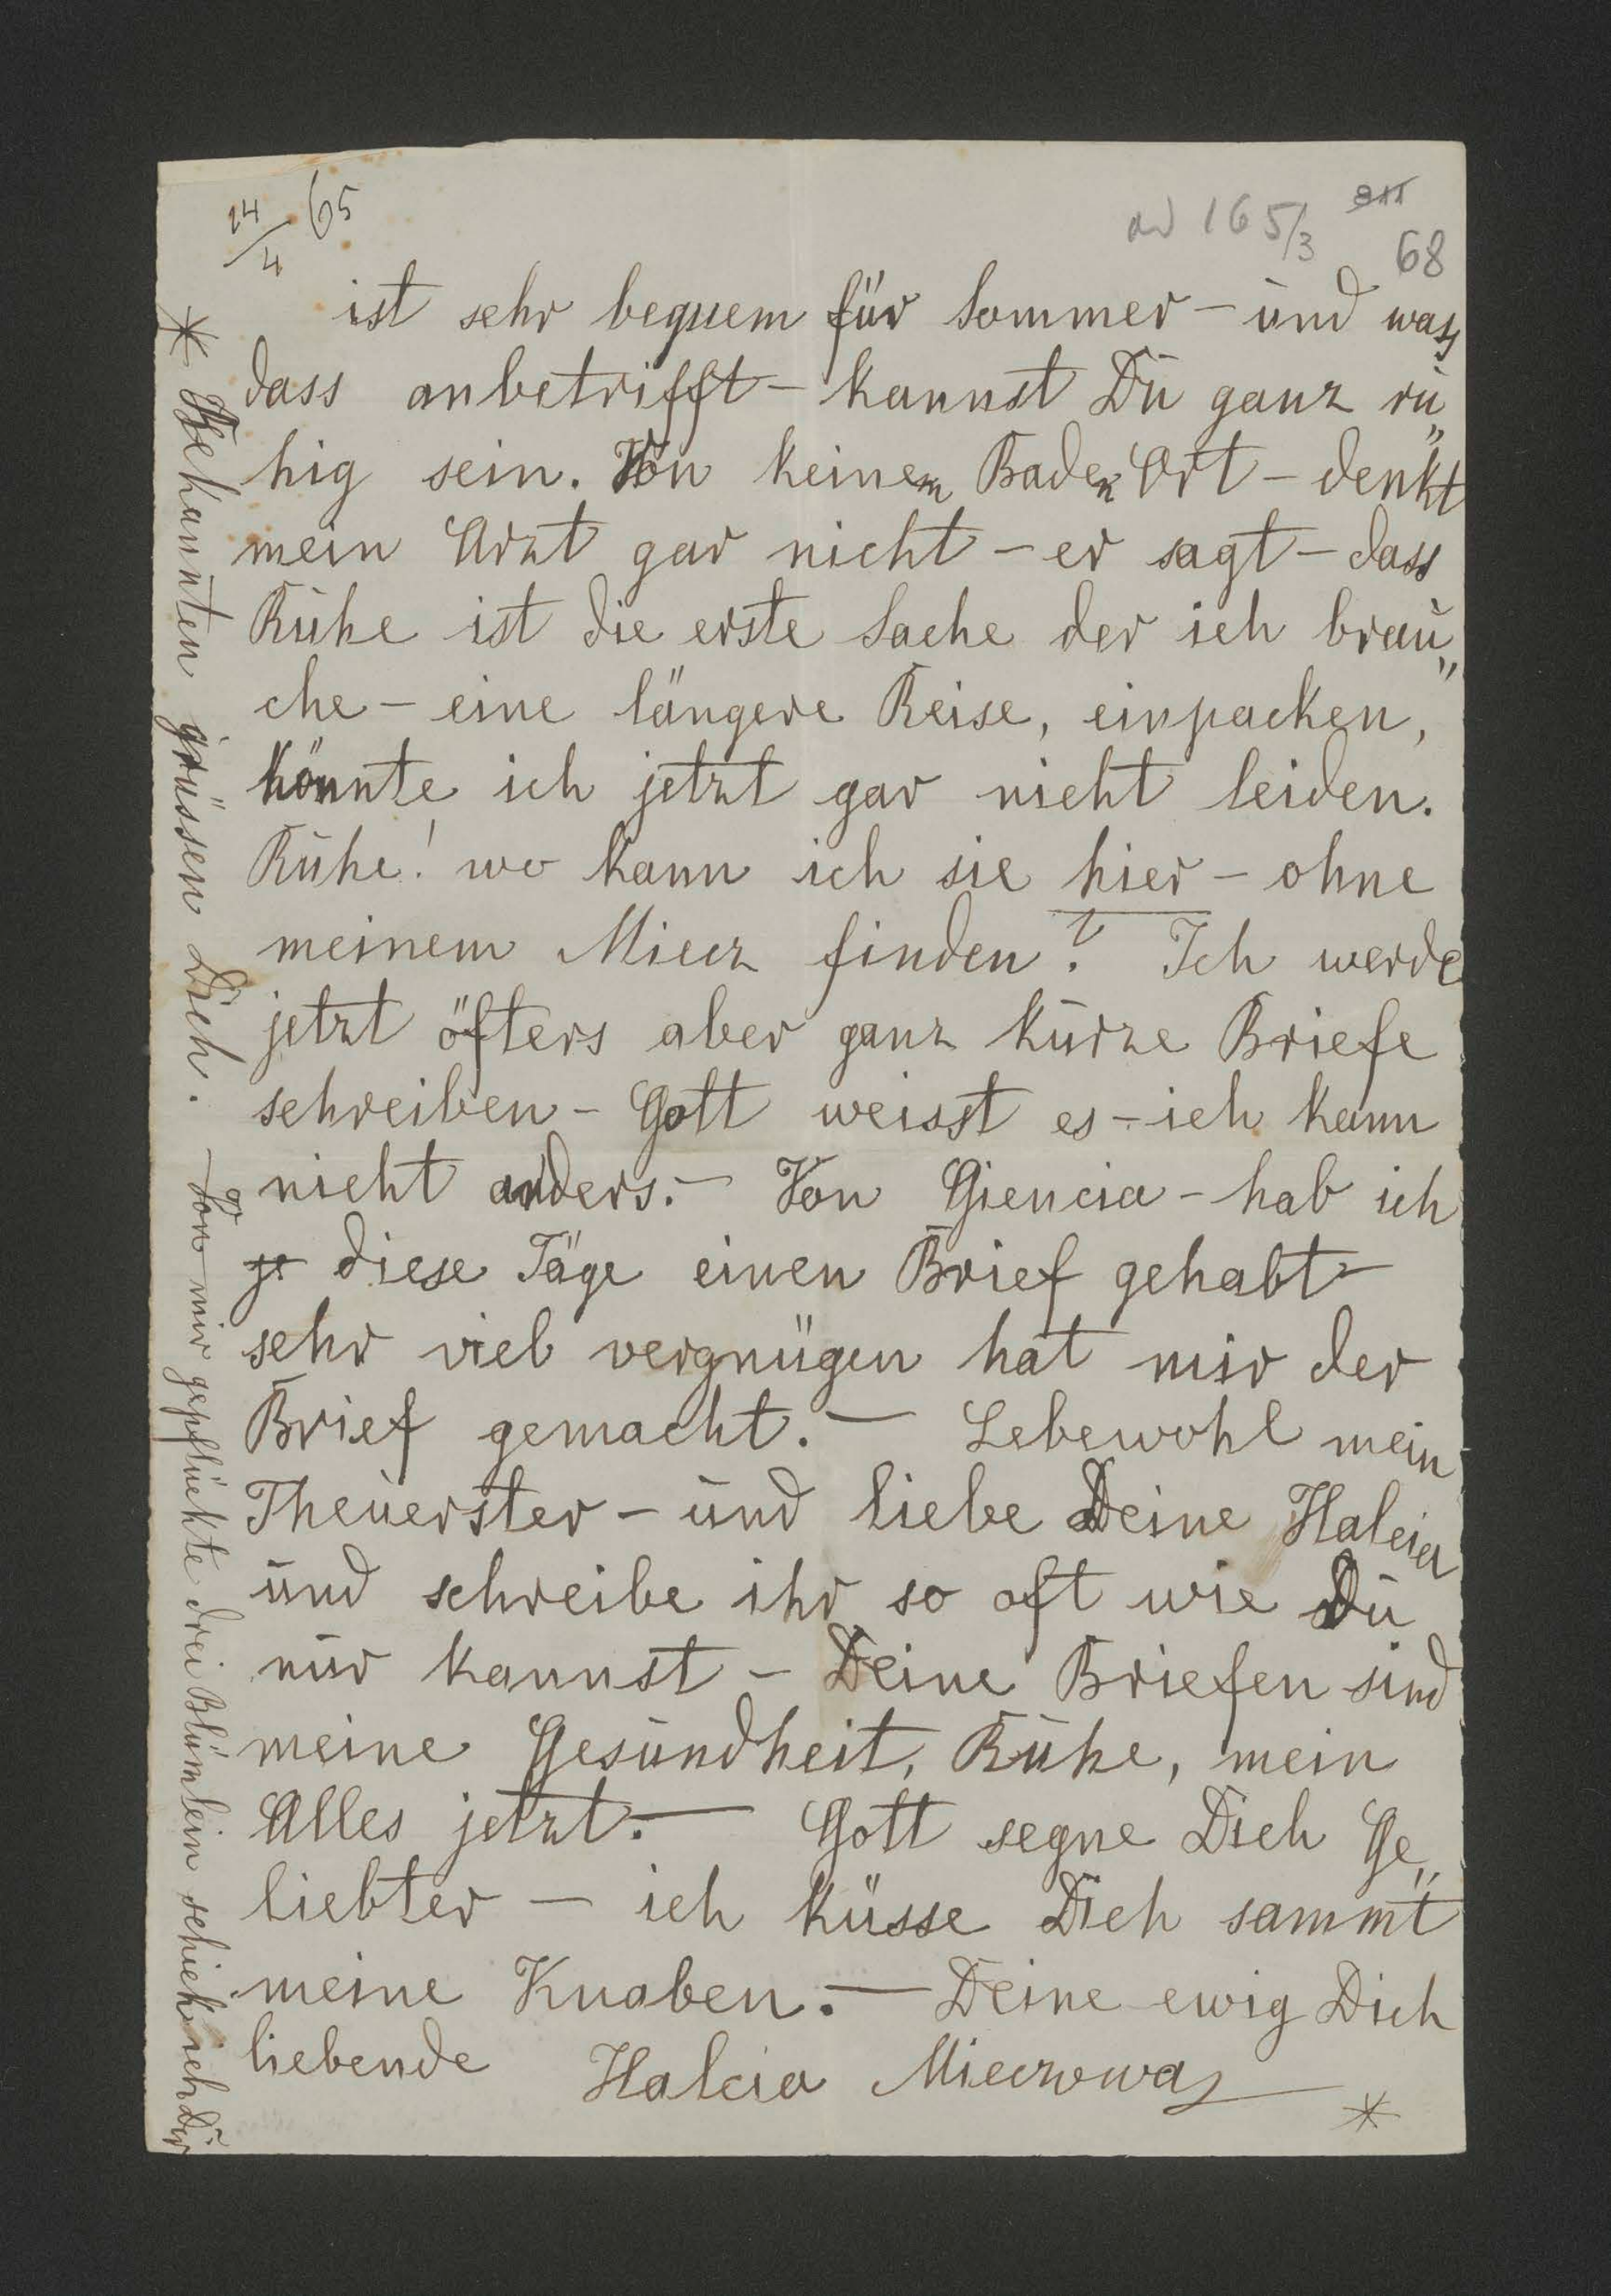 14/4 65
ad 165/3
68
ist sehr bequem für Sommer – und was
dass anbetrifft – kannst Du ganz ru„
hig sein. Von keinem Baden Ort – denkt
mein Arzt gar nicht – er sagt – dass
Ruhe ist die erste Sache der ich brau„
che – eine längere Reise, einpacken,
könnte ich jetzt gar nicht leiden.
Ruhe! wo kann ich sie hier – ohne
meinem Miecz finden? Ich werde
jetzt öfters aber ganz kurze Briefe
schreiben – Gott weisst es – ich kann
nicht anders. – Von Giencia – hab ich
je diese Täge einen Brief gehabt –
sehr viel vergnügen hat mir der
Brief gemacht. – Lebewohl mein
Theuerster – und liebe Deine Halcia
und schreibe ihr so oft wie Du
nur kannst – Deine Briefen sind
meine Gesundheit, Ruhe, mein
Alles jetzt. – Gott segne Dich Ge„
liebter – ich küsse Dich sammt
meine Knaben. – Deine ewig Dich
liebende Halcia Mieczowa
*
* Bekannten grüssen Dich. – Von mir gepflückte drei Blümlein schick ich Dir